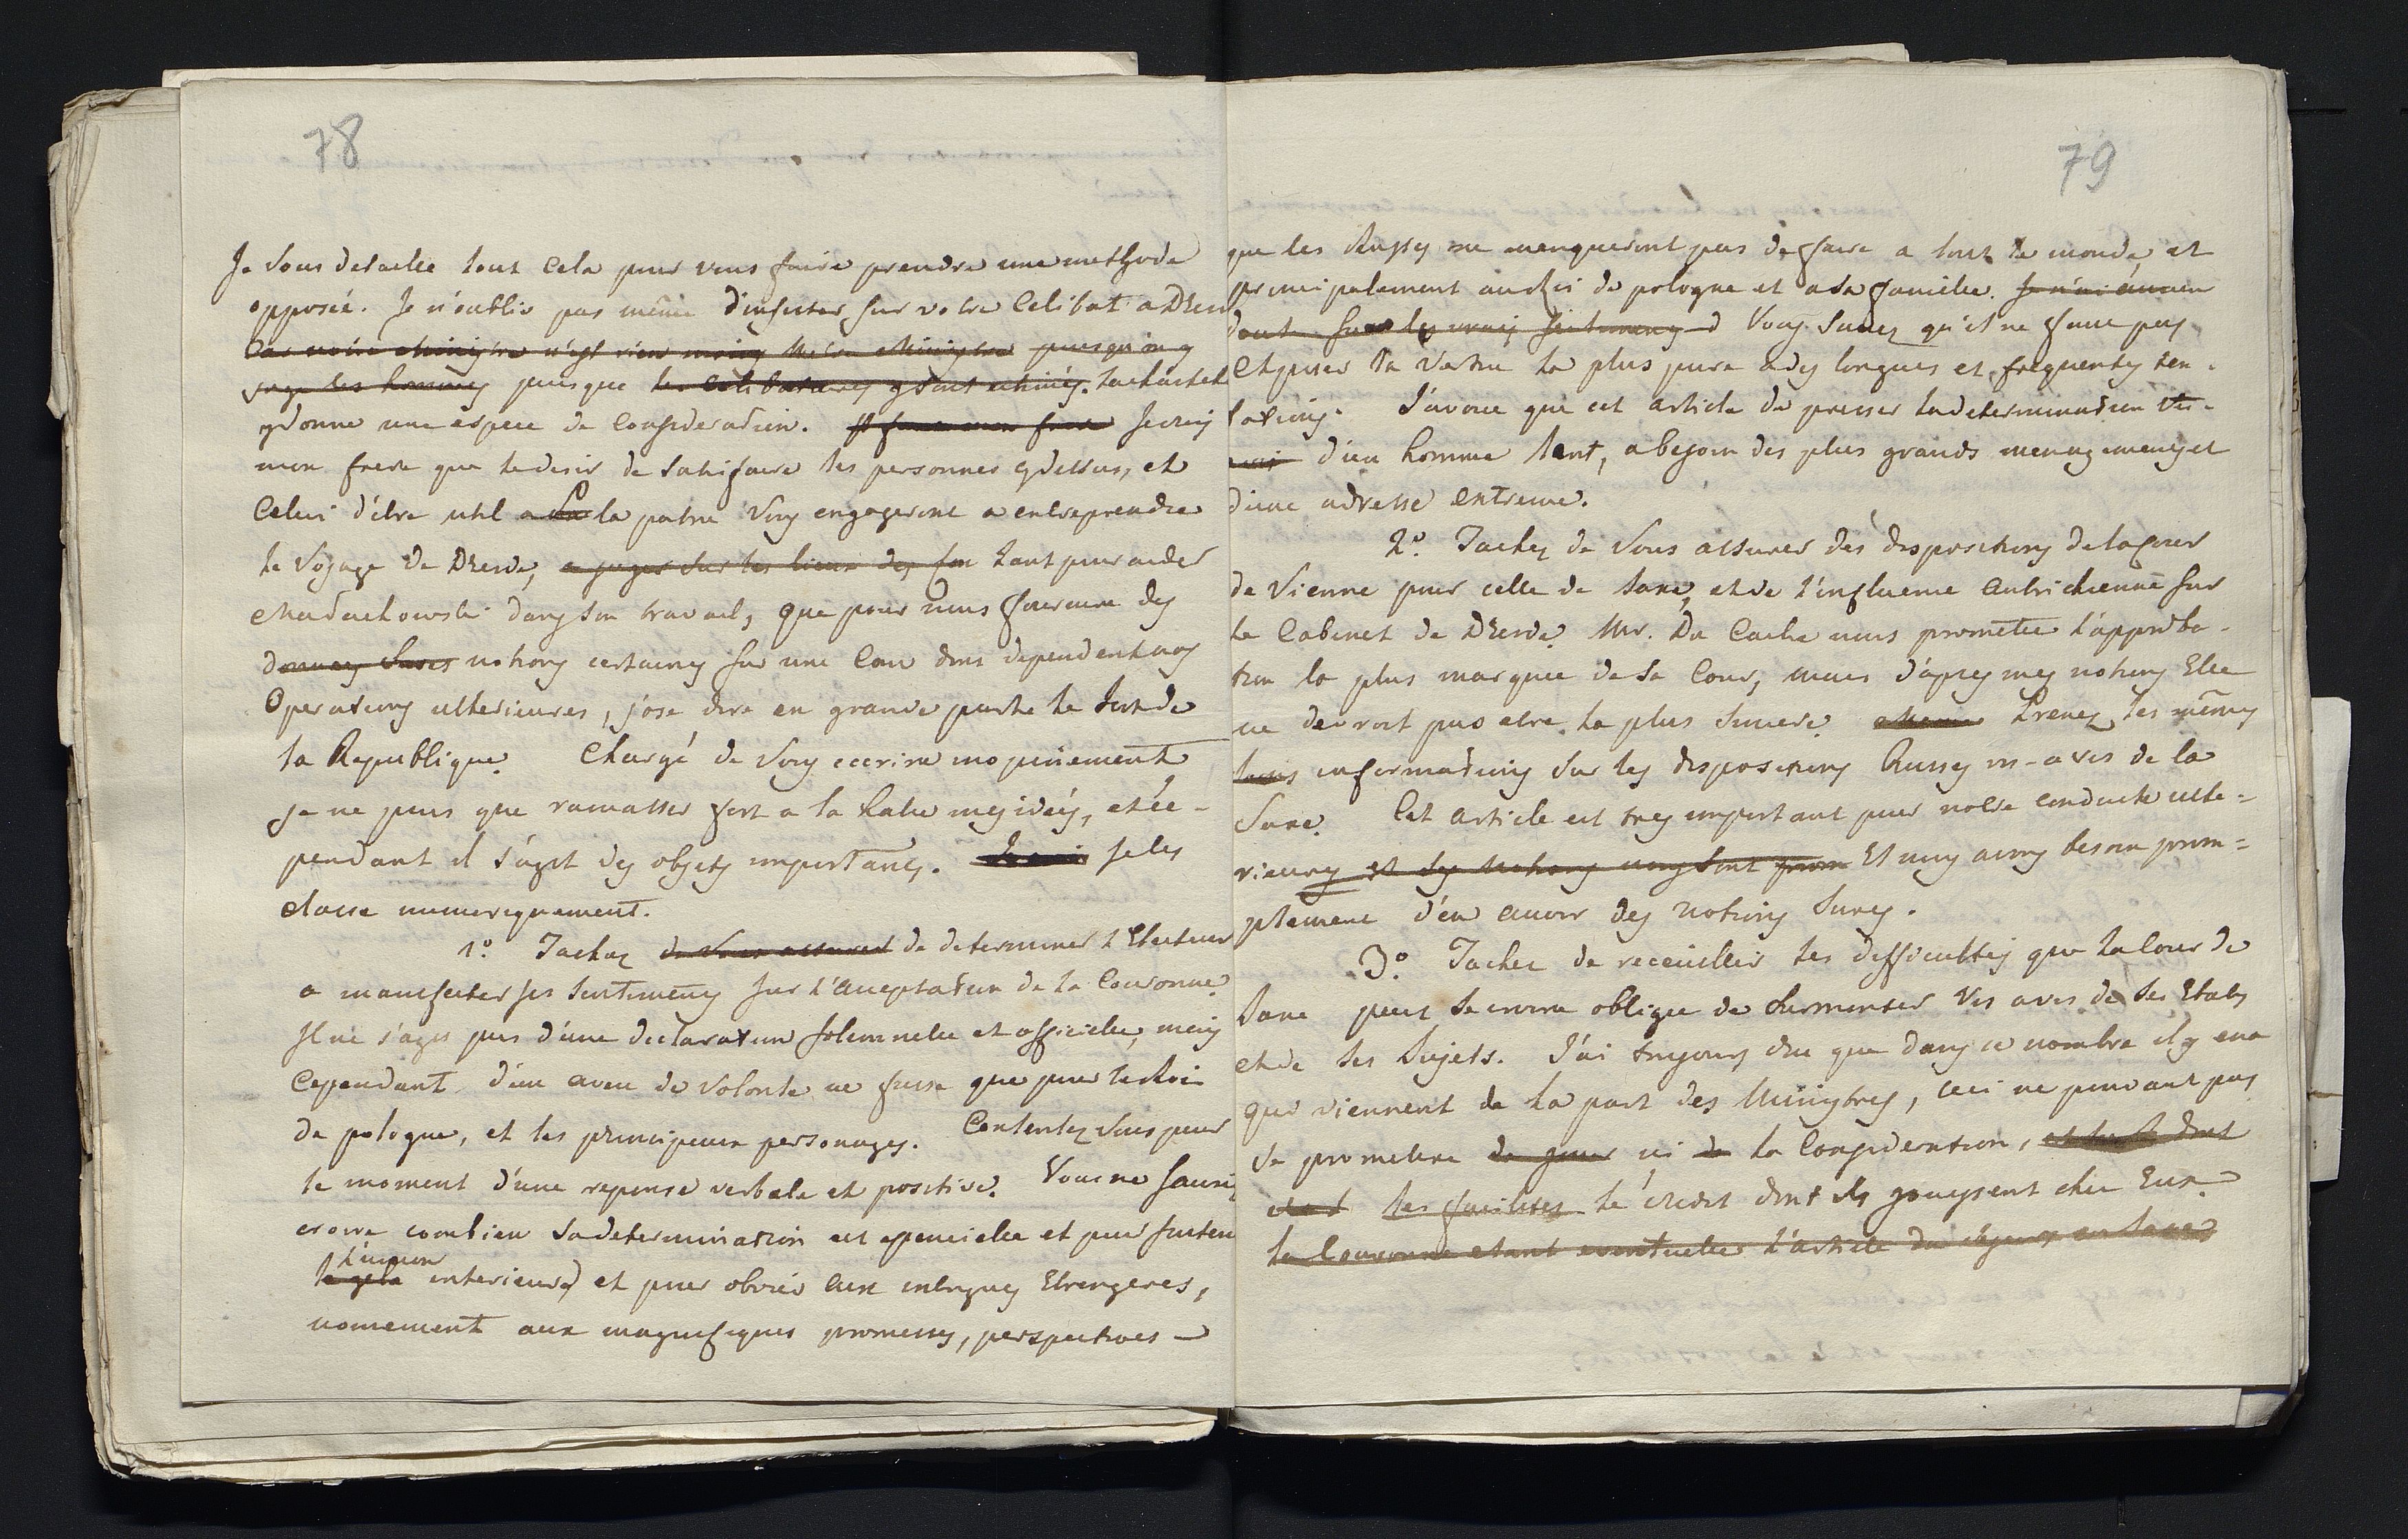 78
Je vous detaille tout cela pour vous faire prendre une methode
opposée. Je n'oublie pas même d'insister sur votre Celibat a Dresd
puisqu'on y
juge les hommes puisque les celibataires y sont
y donne une espece de Consideration. Il faut mon frere Je crois
mon frere que le desir de satisfaire les personnes cydessus, et
Celui d'être util a la patrie Vous engageront a entreprendre
le Voyage de Dresde, a juger sur les lieux des tant pour aider
Madachowski dans son travail, que pour nous fournire des
notions certaines sur une Cour dont dependent nos
Operations ulterieures, j'ose dire en grande partie le sort de
la Republique. Chargé de Vous ecrire inopinement
je ne puis que ramasser fort a la hate mes idées, et ce-
pendant il s'agit des objets importants. Je les
classe numeriquement.
1º. Tachez de vous assurer de determiner l'Electeur
a manifester ses sentiments sur l'acceptation de la Couronne
Il ne s'agit pas d'une declaration solemnelle et officielle, mais
Cependant d'un aveu de Volonté ne fusse que pour le Roi
de pologne, et les principaux personages. Contentez Vous pour
le moment d'une reponse verbale et positive. Vous ne sauriez
croire combien sa determination est essencielle et pour souten
l'union
interieure et pour obvier aux intrigues Etrangeres,
nomement aux magnifiques promesses, perspectives
79
que les Russes ne manqueront pas de faire a tout le monde et
principalement au Roi de pologne et a sa famille. Je n'ai aucun
doute sur les vrais sentiments Vous savez qu'il ne faut pas
Exposer la Vertue la plus pure a des longues et frequentes ten-
tations. J'avoue que cet article de presser la determination
d'un homme lent, a besoin des plus grands menagements et
d'une adresse extreme.
2º. Tachez de Vous assurer des dispositions de la Cour
de Vienne pour celle de Saxe, et de l'influence Autrichienne sur
le Cabinet de Dresde. Mr. De Cache nous promettre l'approba-
tion la plus marquée de sa Cour, mais d'apres mes notions Elle
ne devroit pas etre la plus sincere. Prenez les mêmes
informations sur les dispositions Russes vis-a vis de la
Saxe. Cet article est tres important pour notre conduite ulte=
rieure et des notions nous sont Et nous avons besoin prom=
ptement d'en avoir des Notions sures.
3º. Tachez de receuillir les difficultés que la Cour de
Saxe peut se croire obligée de surmonter Vis avis de ses Etats
et de ses Sujets. J'ai toujours cru que dans ce nombre il y en a
qui viennent de la part des Ministres, ceci ne pouvant pas
se promettre de jouir ici de la Consideration,
les facilités le credit dont ils jouissent chez Eux.
la Couronne etant eventuelle l'article du sejour en Saxe